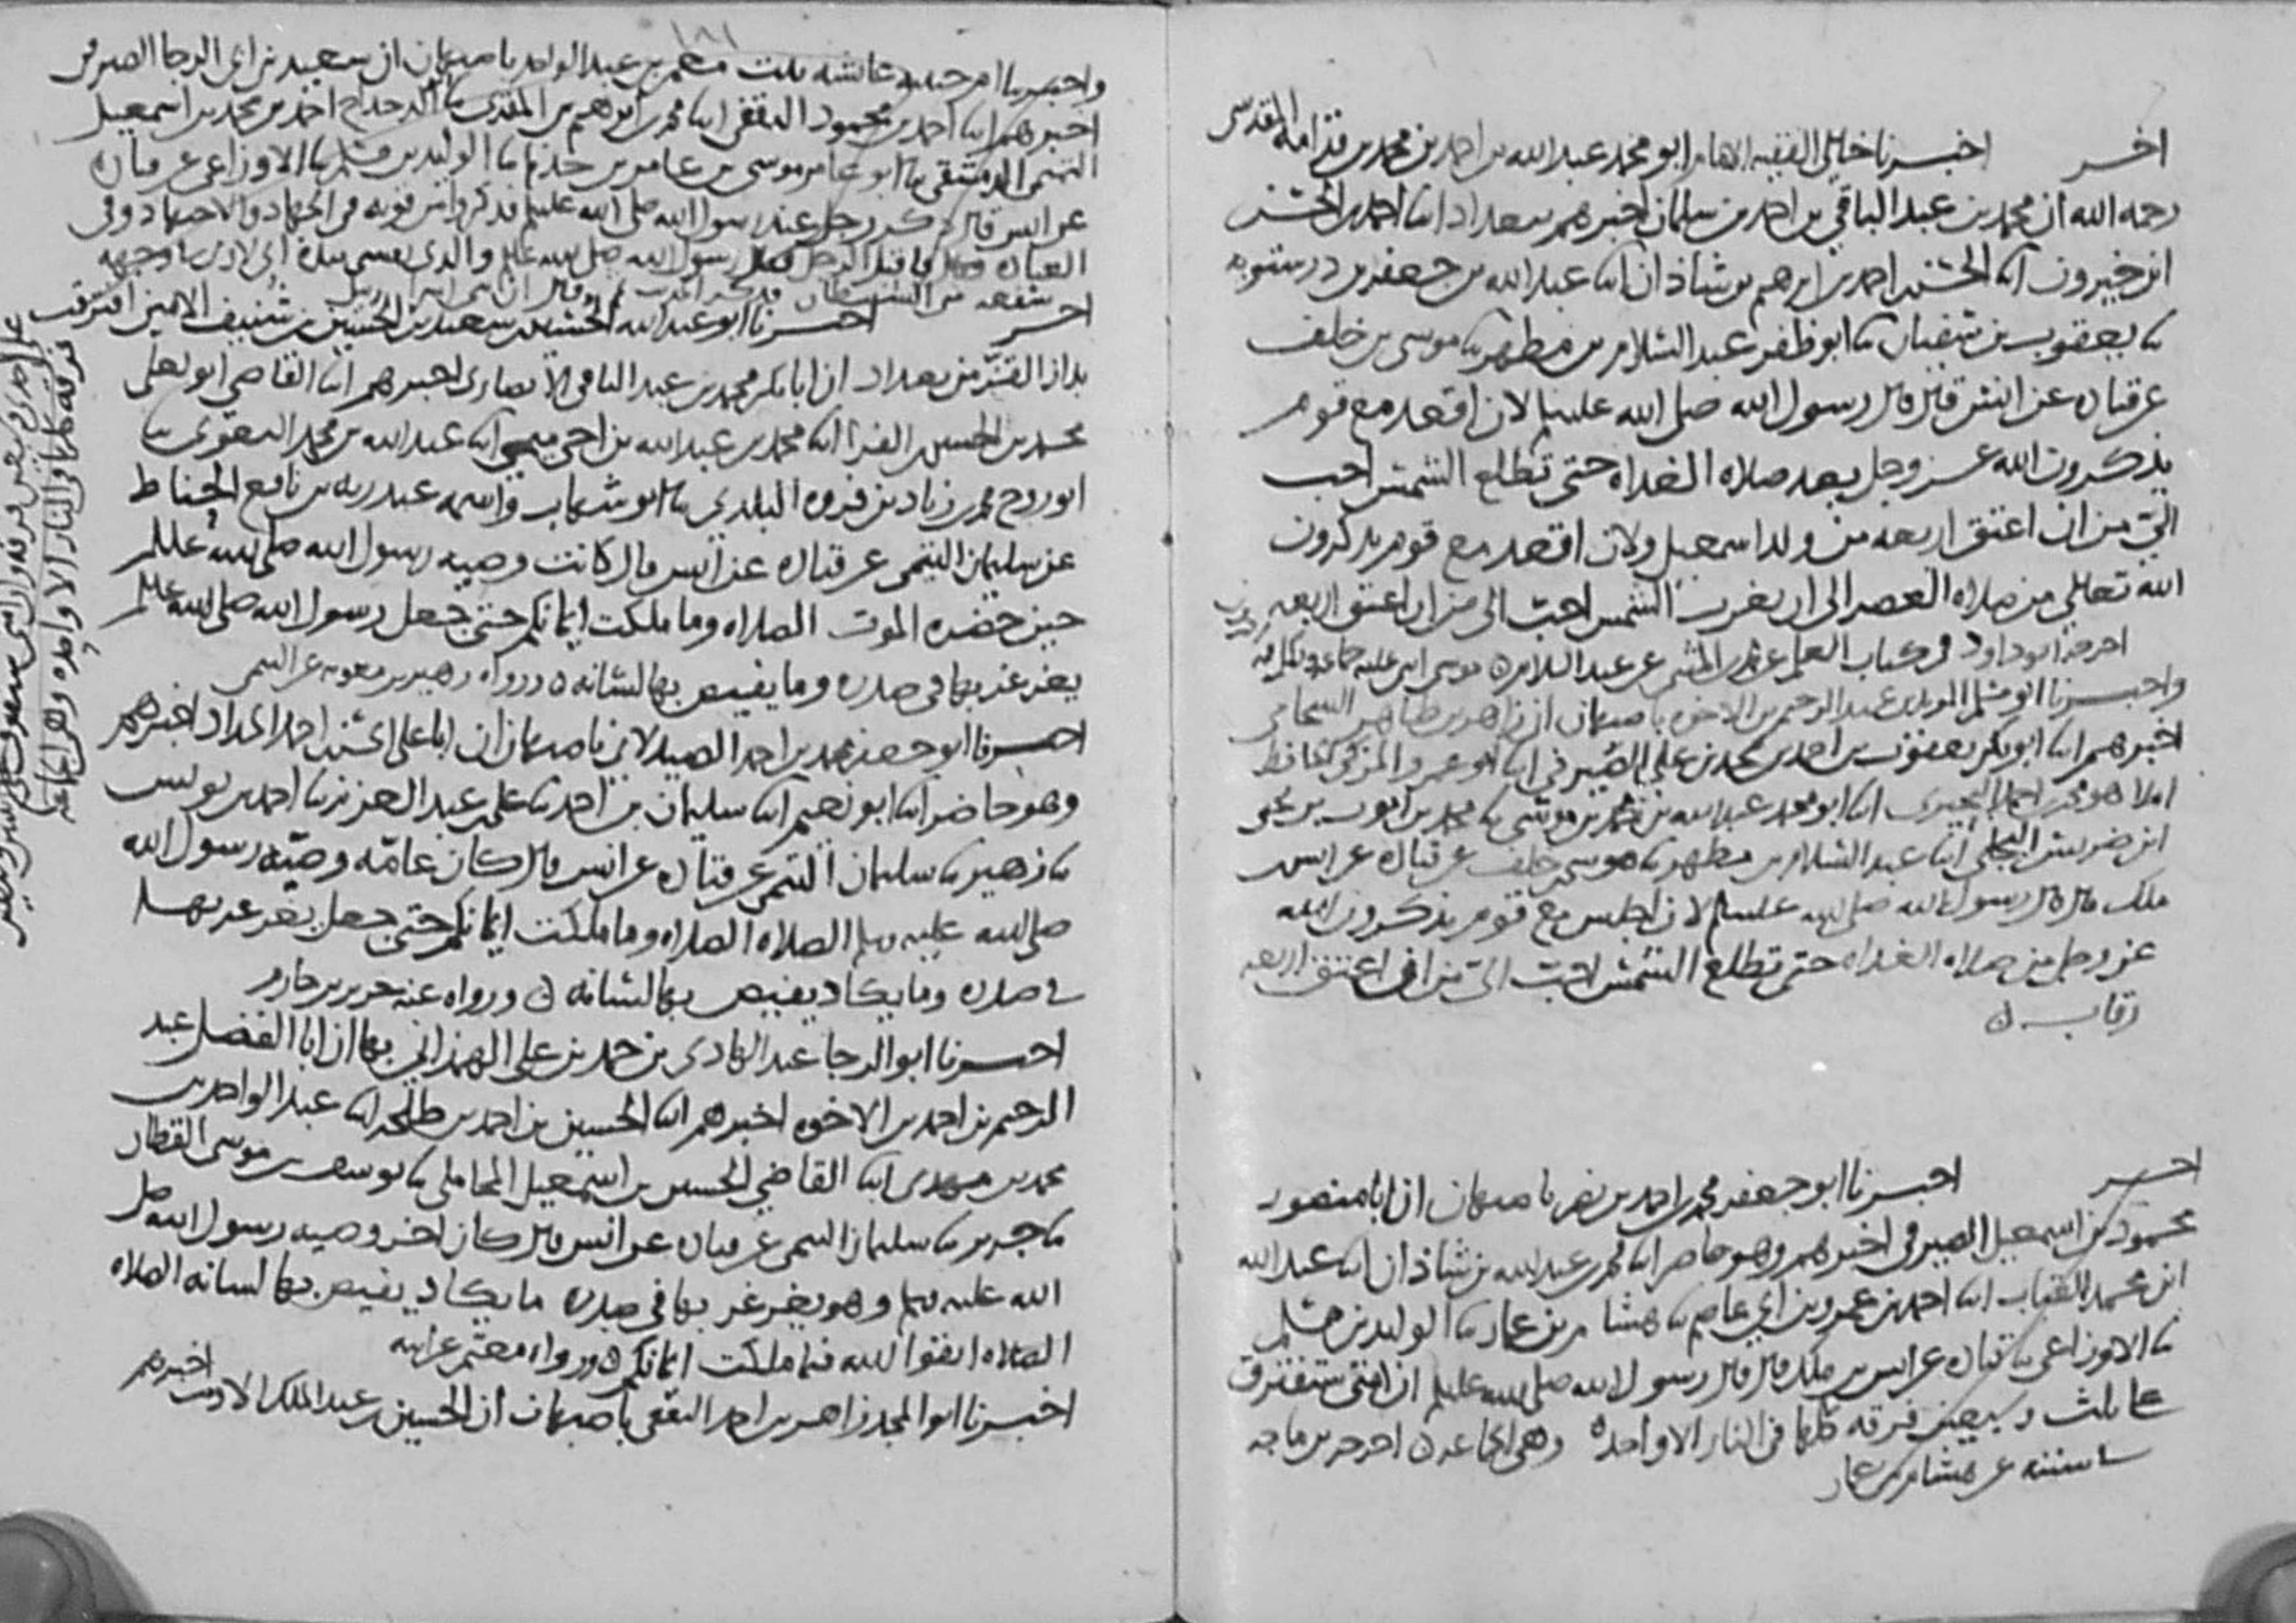 اخر اخبرنا خالي الفقيه الامام ابو محمد عبد الله بن احمد بن محمد بن قدامه المقدسي
رحمه الله ان محمد بن عبد الباقي بن احمد بن سلمان اخبرهم ببغداد انا احمد بن الحسن
ابن خيرون انا الحسن بن احمد بن ابرهيم بن شاذان انا عبد الله بن جعفر بن درستويه
نا يعقوب بن سفيان نا ابو ظفر عبد السلام بن مطهر نا موسى بن خلف
عن قتاده عن انس قال قال رسول الله صلى الله عليه وسلم لان اقعد مع قوم
يذكرون الله عز وجل بعد صلاه الغداه حتى تطلع الشمس احب
الي من ان اعتق اربعه من ولد اسمعيل ولان اقعد مع قوم يذكرون
الله تعالى من صلاه العصر الى ان تغرب الشمس احب الي من ان اعتق اربعه
اخرجه ابو داود في كتاب العلم عن محمد بن المثنى عن عبد السلام
واخبرنا ابو مسلم المويد بن عبد الرحيم بن الاخوه باصبهان ان زاهر بن طاهر الشحامي
اخبرهم انا ابو بكر يعقوب بن احمد بن محمد بن علي الصيرفي انا ابو عمرو المزكي الحافظ
املا هو محمد بن احمد البحيري انا ابو محمد عبد الله بن محمد بن موسى نا محمد بن ايوب بن يحيى
ابن ضريس البجلي انا عبد السلام بن مطهر نا موسى بن خلف عن قتاده عن انس بن
ملك قال قال رسول الله صلى الله عليه وسلم لان اجلس مع قوم يذكرون الله
عز وجل من صلاه الغداه حتى تطلع الشمس احب الي من ان اعتق اربعه
رقاب ن
اخر اخبرنا ابو جعفر محمد بن احمد بن نصر باصبهان ان ابا منصور
محمود بن اسمعيل الصيرفي اخبرهم وهو حاضر انا محمد بن عبد الله بن شاذان انا عبد الله
ابن محمد القباب انا احمد بن عمرو بن ابي عاصم نا هشام بن عمار نا الوليد بن مسلم
نا الاوزاعي نا قتاده عن انس بن ملك قال قال رسول الله صلى الله عليه وسلم ان امتي ستفترق
على ثلث وسبعين فرقه كلها في النار الا واحده وهي الجماعه ن اخرجه بن ماجه
في سننه عن هشام بن عمار
١٨١
واخبرتنا ام حبيبه عائشه بنت معمر بن عبد الواحد باصبهان ان سعيد بن ابي الرجا الصيرفي
اخبرهم انا احمد بن محمود الثقفي انا محمد بن ابرهيم بن المقرئ نا ابو الدحداح احمد بن محمد بن اسمعيل
التميمي الدمشقي نا ابو عامر موسى بن عامر بن خريم نا الوليد بن مسلم نا الاوزاعي عن قتاده
عن انس قال ذكر رجل عند رسول الله صلى الله عليه وسلم فذكروا من قوته في الجهاد والاجتهاد في
العباده فلما اقبل الرجل قال رسول الله صلى الله عليه وسلم والذي نفسي بيده اني لارى في وجهه
سفعه من الشيطان
اخر اخبرنا ابو عبد الله الحسين بن سعيد بن الحسين بن شنيف الامين
بدار القز من بغداد ان ابا بكر محمد بن عبد الباقي الانصاري اخبرهم انا القاضي ابو يعلى
محمد بن الحسين الفرا انا محمد بن عبد الله بن اخي ميمي انا عبد الله بن محمد البغوي نا
ابو روح محمد بن زياد بن فروه البلدي نا ابو شهاب واسمه عبد ربه بن نافع الحناط
عن سليمان التيمي عن قتاده عن انس قال كانت وصيه رسول الله صلى الله عليه وسلم
حين حضره الموت الصلاه وما ملكت ايمانكم حتى جعل رسول الله صلى الله عليه وسلم
يغرغر بها في صدره وما يفيص بها لسانه ن ورواه زهير بن معويه عن التيمي
اخبرنا ابو جعفر محمد بن احمد الصيدلاني باصبهان ان ابا علي الحسن بن احمد الحداد اخبرهم
وهو حاضر انا ابو نعيم انا سليمان بن احمد نا علي بن عبد العزيز نا احمد بن يونس
نا زهير نا سليمان التيمي عن قتاده عن انس قال كان عامه وصيه رسول الله
صلى الله عليه وسلم الصلاه الصلاه وما ملكت ايمانكم حتى جعل يغرغر بها
في صدره وما يكاد يفيص بها لسانه ن ورواه عنه جرير بن حازم
اخبرنا ابو الرجا عبد الهادي بن حمد بن علي الهمذاني بها ان ابا الفضل عبد
الرحيم بن احمد بن الاخوه اخبرهم انا الحسين بن احمد بن طلحه انا عبد الواحد بن
محمد بن مهدي انا القاضي الحسين بن اسمعيل المحاملي نا يوسف بن موسى القطان
نا جرير نا سليمان التيمي عن قتاده عن انس قال كان اخر وصيه رسول الله صلى
الله عليه وسلم وهو يغرغر بها في صدره ما يكاد يفيص بها لسانه الصلاه
الصلاه اتقوا الله فيما ملكت ايمانكم ن ورواه معتمر عن ابيه
اخبرنا ابو المجد زاهر بن احمد الثقفي باصبهان ان الحسين بن عبد الملك الاديب اخبرهم
افترقت
على احدى وسبعين فرقه وان امتي ستفترق على اثنتين وسبعين
فرقه كلها في النار الا واحده وهي الجماعه